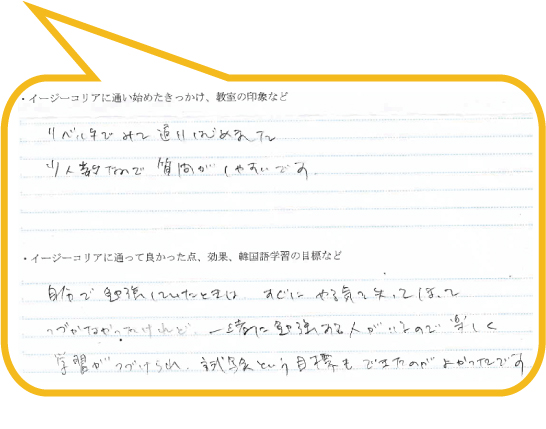 ・イージーコリアに通い始めたきっかけ、教室の印象など
リベルタでみて通いはじめました
少人数なので質問がしやすいです。
・イージーコリアに通って良かった点、効果、韓国語学習の目標など
自分で勉強していたときは、すぐにやる気を失ってしまって
つづかなかったけれど、一緒に勉強する人がいるので楽しく
学習がつづけられ、試験という目標もできたのがよかったです